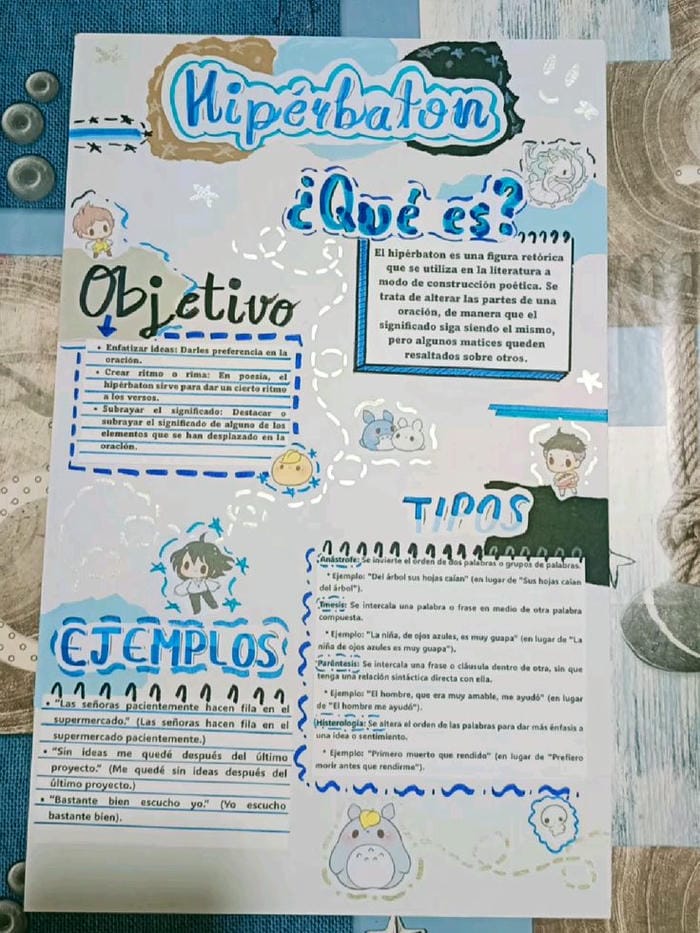 Hipérbaton
¿Qué es?
El hipérbaton es una figura retórica
que se utiliza en la literatura a
modo de construcción poética. Se
trata de alterar las partes de una
oración, de manera que el
significado siga siendo el mismo,
pero algunos matices queden
resaltados sobre otros.
Objetivo
• Enfatizar ideas: Darles preferencia en la
oración.
• Crear ritmo o rima: En poesía, el
hipérbaton sirve para dar un cierto ritmo
a los versos.
• Subrayar el significado: Destacar o
subrayar el significado de alguno de los
elementos que se han desplazado en la
oración.
TIPOS
Anástrofe: Se invierte el orden de dos palabras o grupos de palabras.
* Ejemplo: "Del árbol sus hojas caían" (en lugar de "Sus hojas caían
del árbol").
Tmesis: Se intercala una palabra o frase en medio de otra palabra
compuesta.
* Ejemplo: "La niña, de ojos azules, es muy guapa" (en lugar de "La
niña de ojos azules es muy guapa").
Paréntesis: Se intercala una frase o cláusula dentro de otra, sin que
tenga una relación sintáctica directa con ella.
* Ejemplo: "El hombre, que era muy amable, me ayudó" (en lugar
de "El hombre me ayudó").
Histerología: Se altera el orden de las palabras para dar más énfasis a
una idea o sentimiento.
* Ejemplo: "Primero muerto que rendido" (en lugar de "Prefiero
morir antes que rendirme").
EJEMPLOS
• "Las señoras pacientemente hacen fila en el
supermercado." (Las señoras hacen fila en el
supermercado pacientemente.)
• "Sin ideas me quedé después del último
proyecto." (Me quedé sin ideas después del
último proyecto.)
• "Bastante bien escucho yo." (Yo escucho
bastante bien).